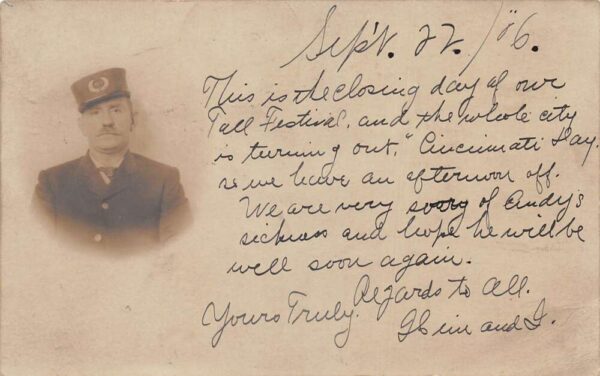 Sep't. 22. / 06.
This is the closing day of our
Fall Festival, and the whole city
is turning out, "Cincinnati Day.
so we have an afternoon off.
We are very sorry of Andy's
sickness and hope he will be
well soon again.
Regards to All.
Yours Truly.
and I.